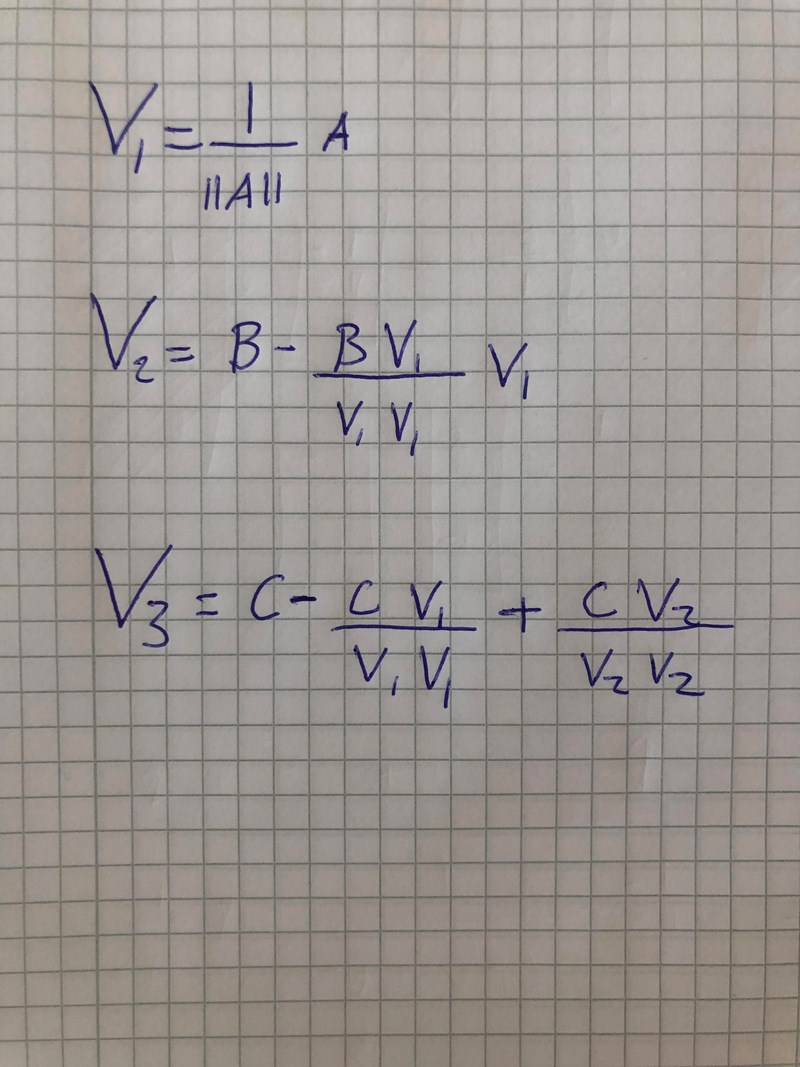 V₁ = 1/||A|| A
V₂ = B - (B V₁)/(V₁ V₁) V₁
V₃ = C - (C V₁)/(V₁ V₁) + (C V₂)/(V₂ V₂)